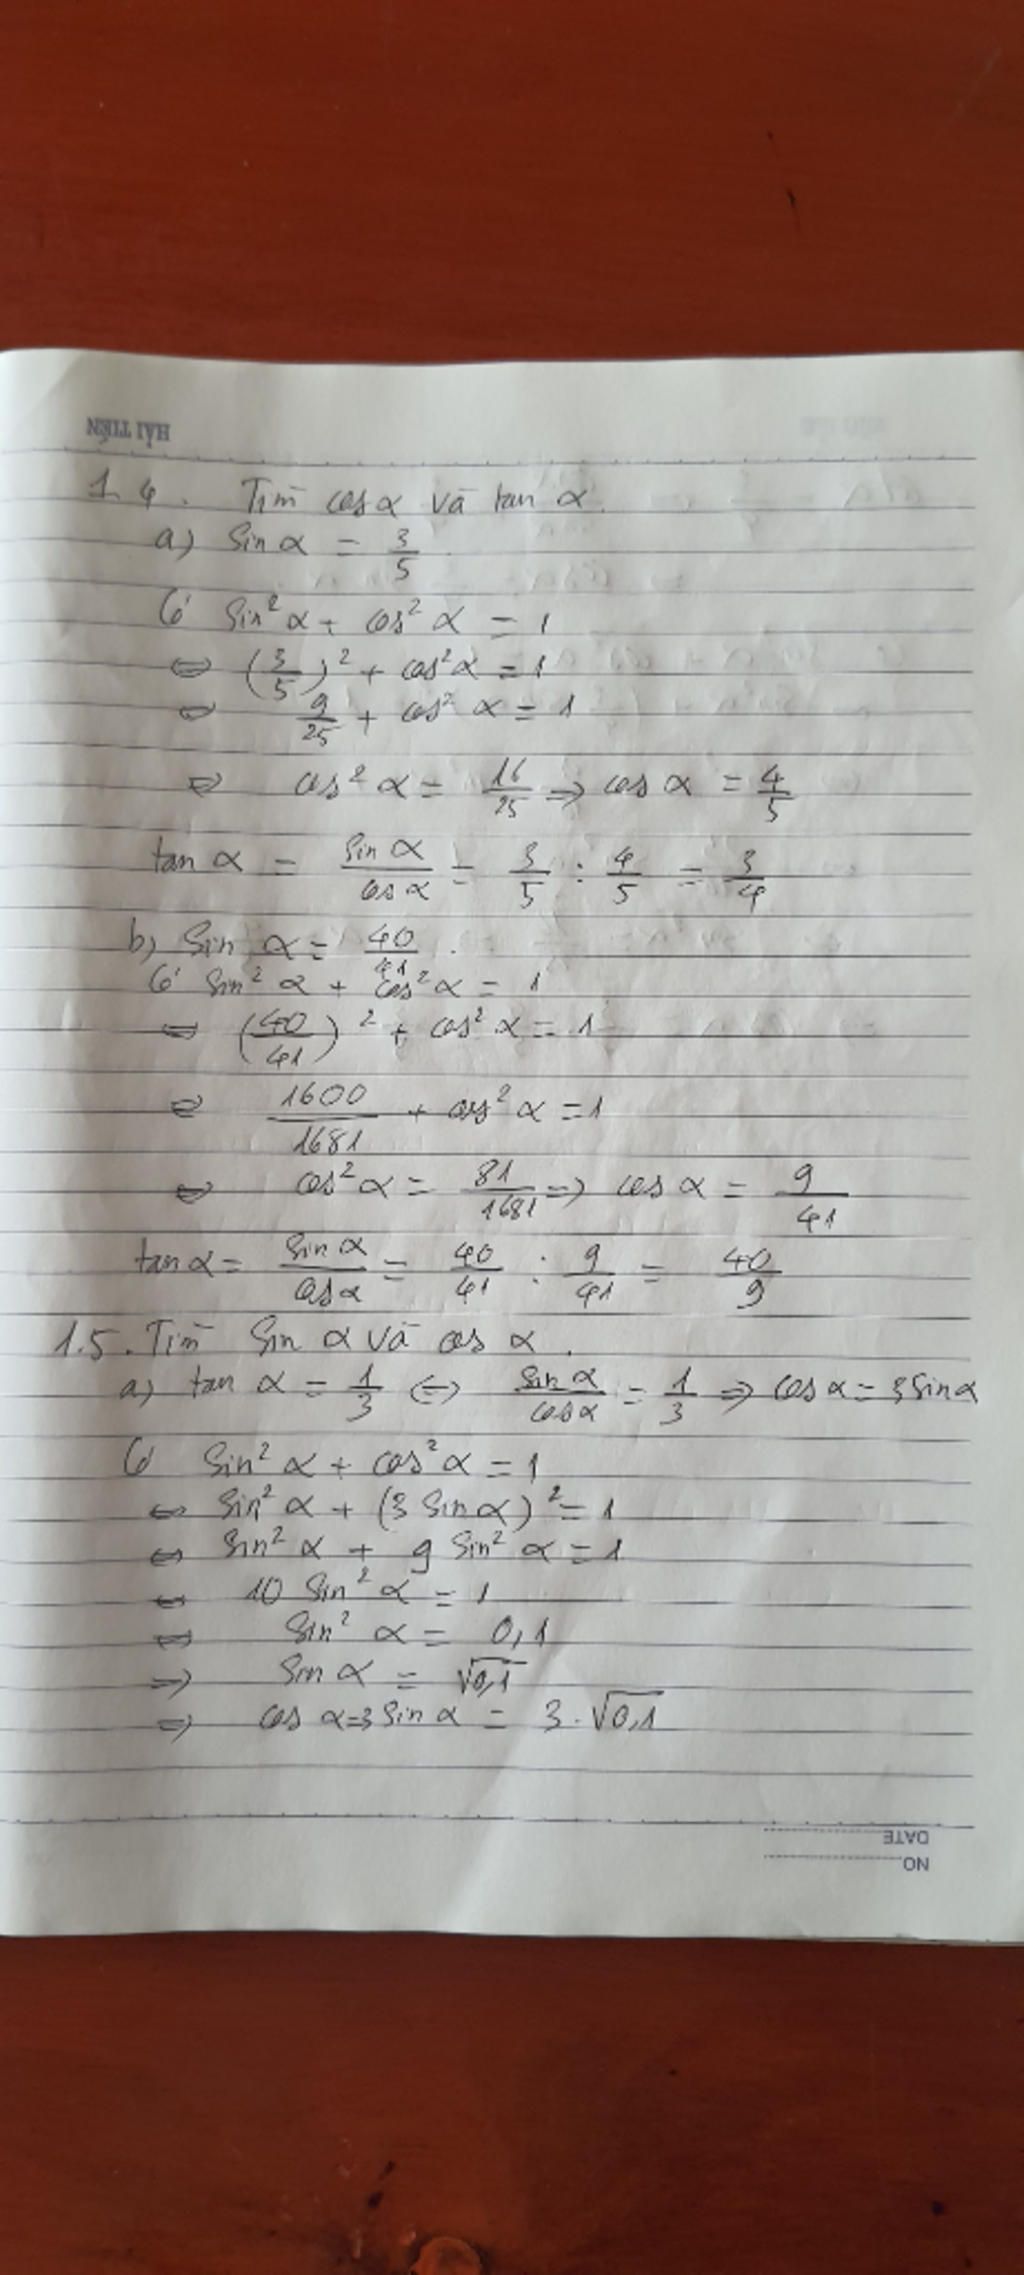 HẢI TIẾN
1.4. Tìm cos α và tan α.
a) Sin α = 3/5
Có Sin² α + cos² α = 1
⇔ (3/5)² + cos² α = 1
⇔ 9/25 + cos² α = 1
⇔ cos² α = 16/25 ⇒ cos α = 4/5
tan α = Sin α / cos α = 3/5 : 4/5 = 3/4
b) Sin α = 40/41.
Có Sin² α + cos² α = 1
⇔ (40/41)² + cos² α = 1
⇔ 1600/1681 + cos² α = 1
⇔ cos² α = 81/1681 ⇒ cos α = 9/41
tan α = Sin α / cos α = 40/41 : 9/41 = 40/9
1.5. Tìm Sin α và cos α.
a) tan α = 1/3 ⇔ Sin α / cos α = 1/3 ⇒ cos α = 3 Sin α
Có Sin² α + cos² α = 1
⇔ Sin² α + (3 Sin α)² = 1
⇔ Sin² α + 9 Sin² α = 1
⇔ 10 Sin² α = 1
⇔ Sin² α = 0,1
⇒ Sin α = √0,1
⇒ cos α = 3 Sin α = 3 . √0,1
DATE
NO